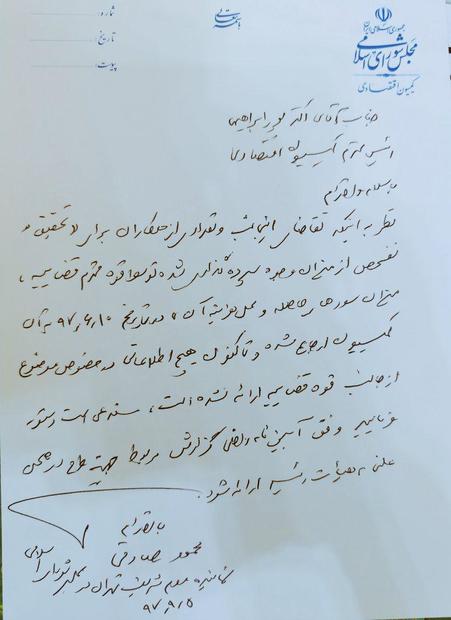 شماره:
تاریخ:
پیوست:
باسمه تعالی
جمهوری اسلامی ایران
مجلس شورای اسلامی
کمیسیون اقتصادی
جناب آقای دکتر پورابراهیمی
رئیس محترم کمیسیون اقتصادی
با سلام و احترام
نظر به اینکه تقاضای اینجانب و تعدادی از همکاران برای «تحقیق و
تفحص از میزان وجوه سپرده گذاری شده توسط قوه محترم قضاییه،
میزان سودهای حاصله و محل هزینه آن» در تاریخ ۹۷,۶,۱۰ به آن
کمیسیون ارجاع شده و تاکنون هیچ اطلاعاتی در خصوص موضوع
از جانب قوه قضاییه ارائه نشده است، مستدعی است دستور
فرمایید وفق آیین نامه داخلی گزارش مربوط جهت طرح در صحن
علنی به هیأت رئیسه ارائه شود.
با احترام
محمود صادقی
نماینده مردم شریف تهران در مجلس شورای اسلامی
۹۷,۹,۵